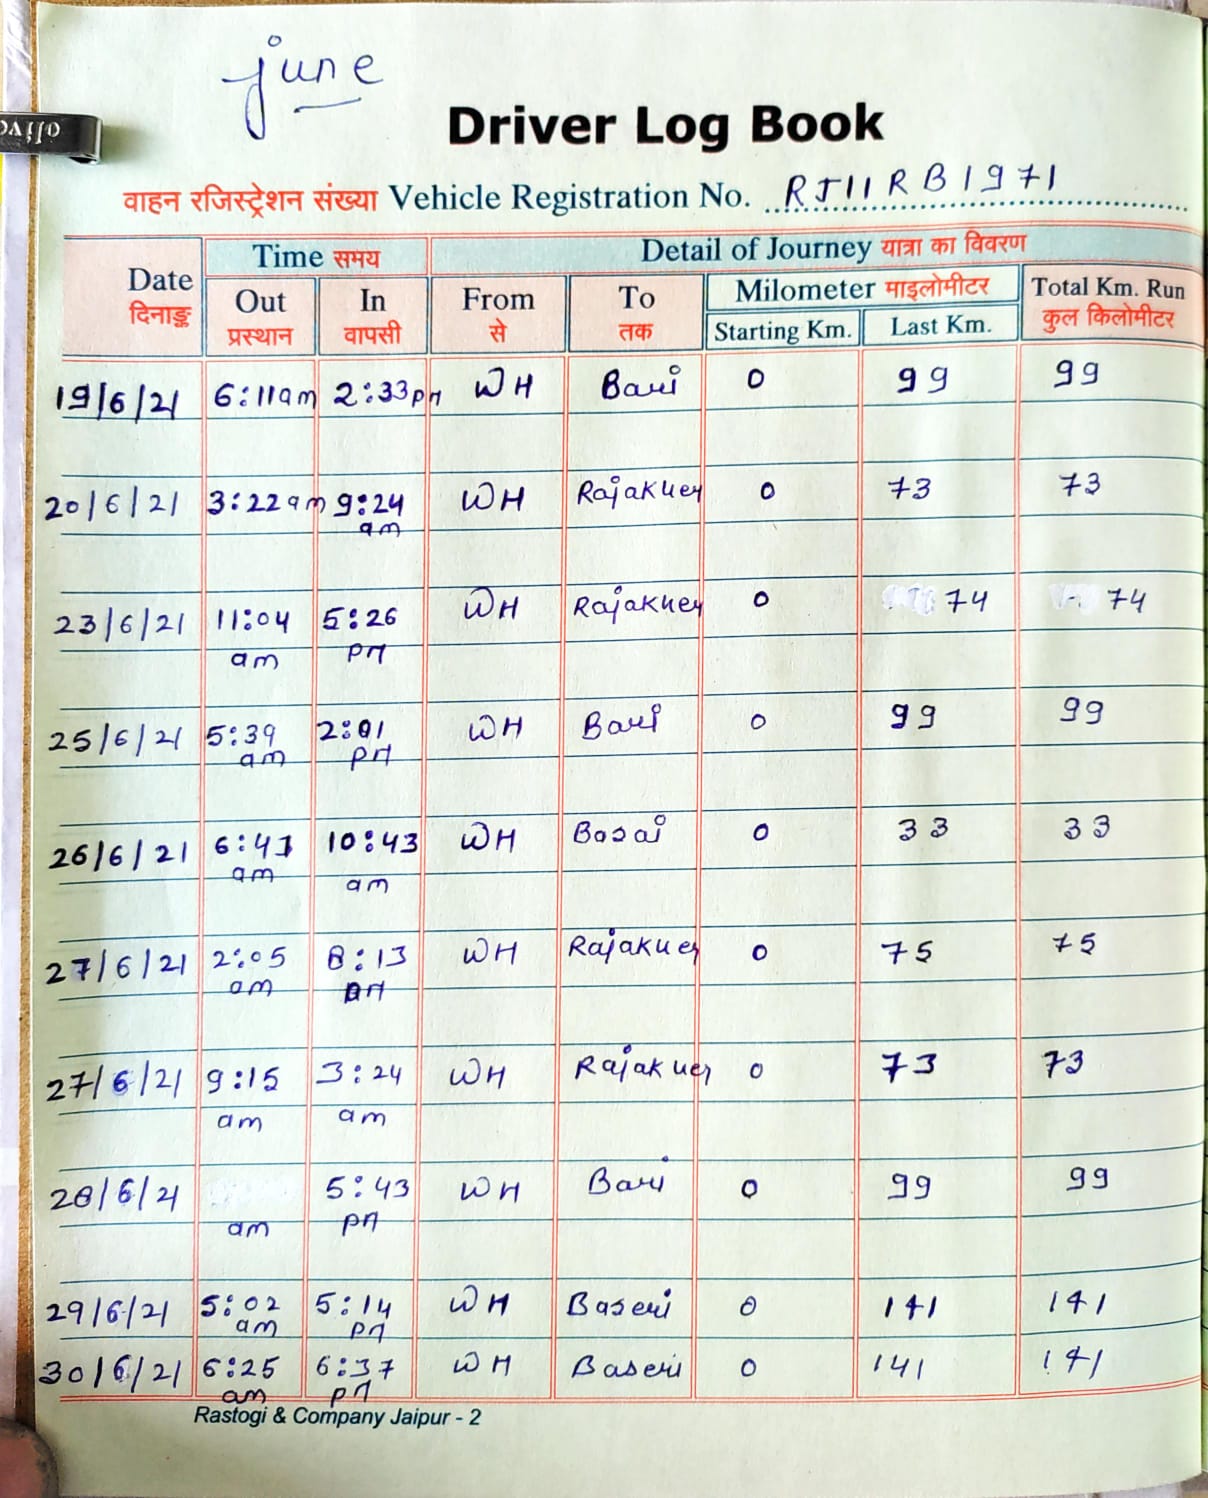 june
Driver Log Book
वाहन रजिस्ट्रेशन संख्या Vehicle Registration No. RJ11RB1971
Date दिनाङ्क Time समय Detail of Journey यात्रा का विवरण
Out प्रस्थान In वापसी From से To तक Milometer माइलोमीटर Total Km. Run कुल किलोमीटर
Starting Km. Last Km.
19/6/21 6:11am 2:33pm WH Bari 0 99 99
20/6/21 3:22am 9:24 am WH Rajakher 0 73 73
23/6/21 11:04 am 5:26 pm WH Rajakher 0 74 74
25/6/21 5:39 am 2:01 pm WH Bari 0 99 99
26/6/21 6:41 am 10:43 am WH Basai 0 33 33
27/6/21 2:05 am 8:13 WH Rajakher 0 75 75
27/6/21 9:15 am 3:24 am WH Rajakher 0 73 73
28/6/21 am 5:43 pm WH Bari 0 99 99
29/6/21 5:02 am 5:14 pm WH Baseri 0 141 141
30/6/21 6:25 am 6:37 pm WH Baseri 0 141 141
Rastogi & Company Jaipur - 2